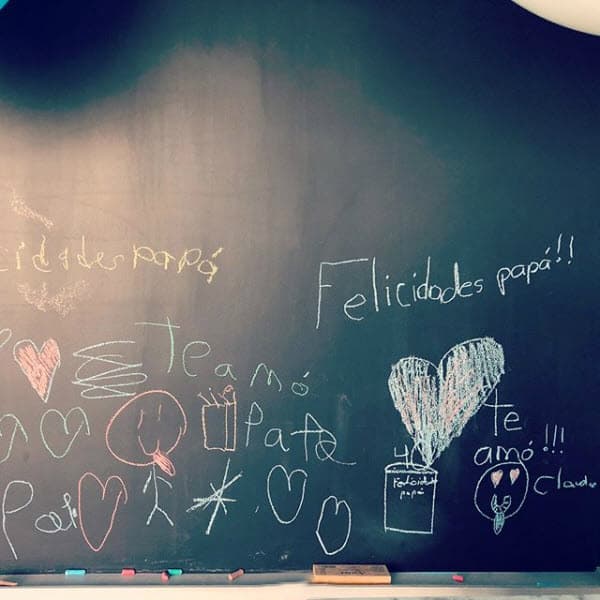 cidades papá
Felicidades papá!!
Te amó
te
amó!!!
Felicidades
papá
Claudia